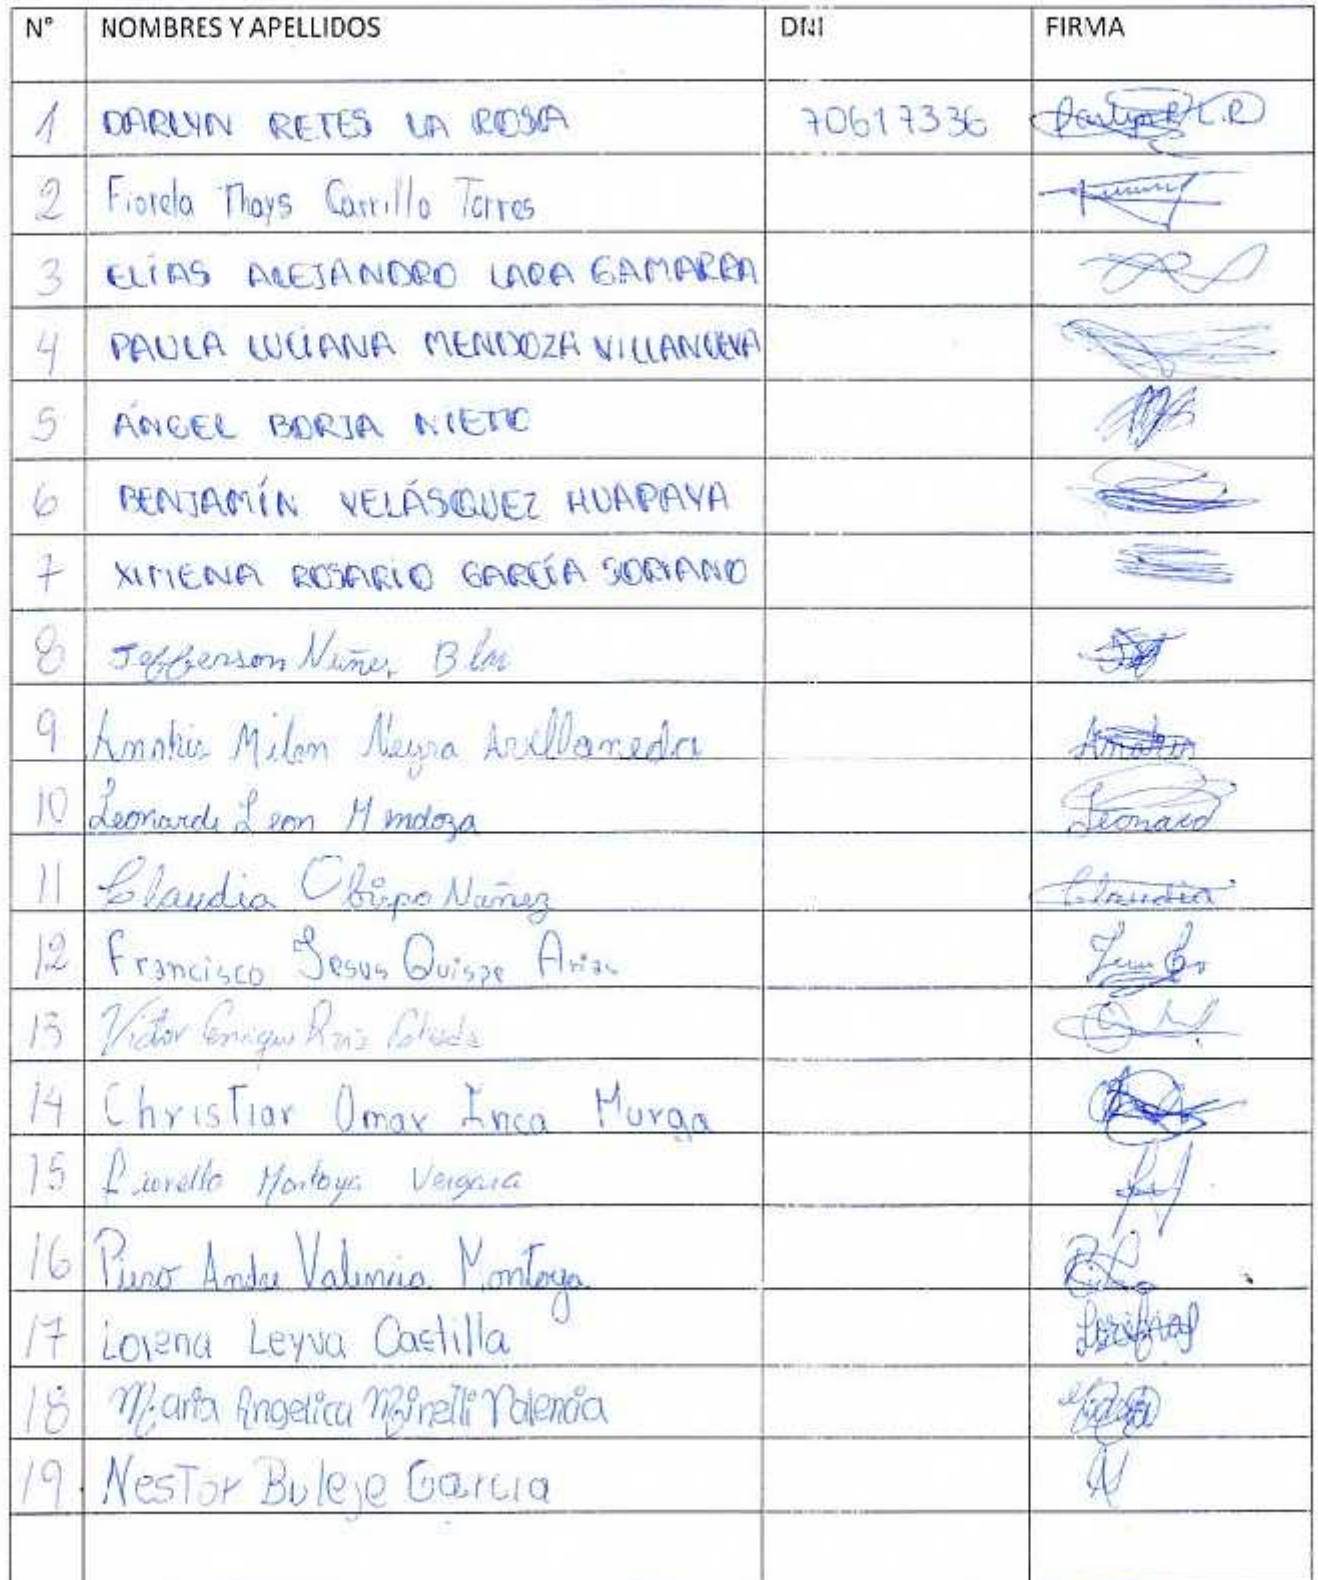 N° NOMBRES Y APELLIDOS DNI FIRMA
1 DARLYN RETES LA ROSA 70617336
2 Fiorela Thays Carrillo Torres
3 ELÍAS ALEJANDRO LARA GAMARRA
4 PAULA LUCIANA MENDOZA VILLANUEVA
5 ÁNGEL BORJA NIETO
6 BENJAMÍN VELÁSQUEZ HUAPAYA
7 XIMENA ROSARIO GARCÍA SORIANO
8 Jefferson Nuñez
9 Milan Neyra Avellaneda
10 Leon Mendoza Leonard
11 Claudia Obispo Nuñez Claudia
12 Francisco Jesus Quispe Arias
13 Victor Enrique Ruiz
14 Christian Omar Inca Murga
15 Montoya Vergara
16 Piero Andre Valencia Montoya
17 Lorena Leyva Castilla
18 Maria Angelica Valencia
19 Nestor Buleje Garcia